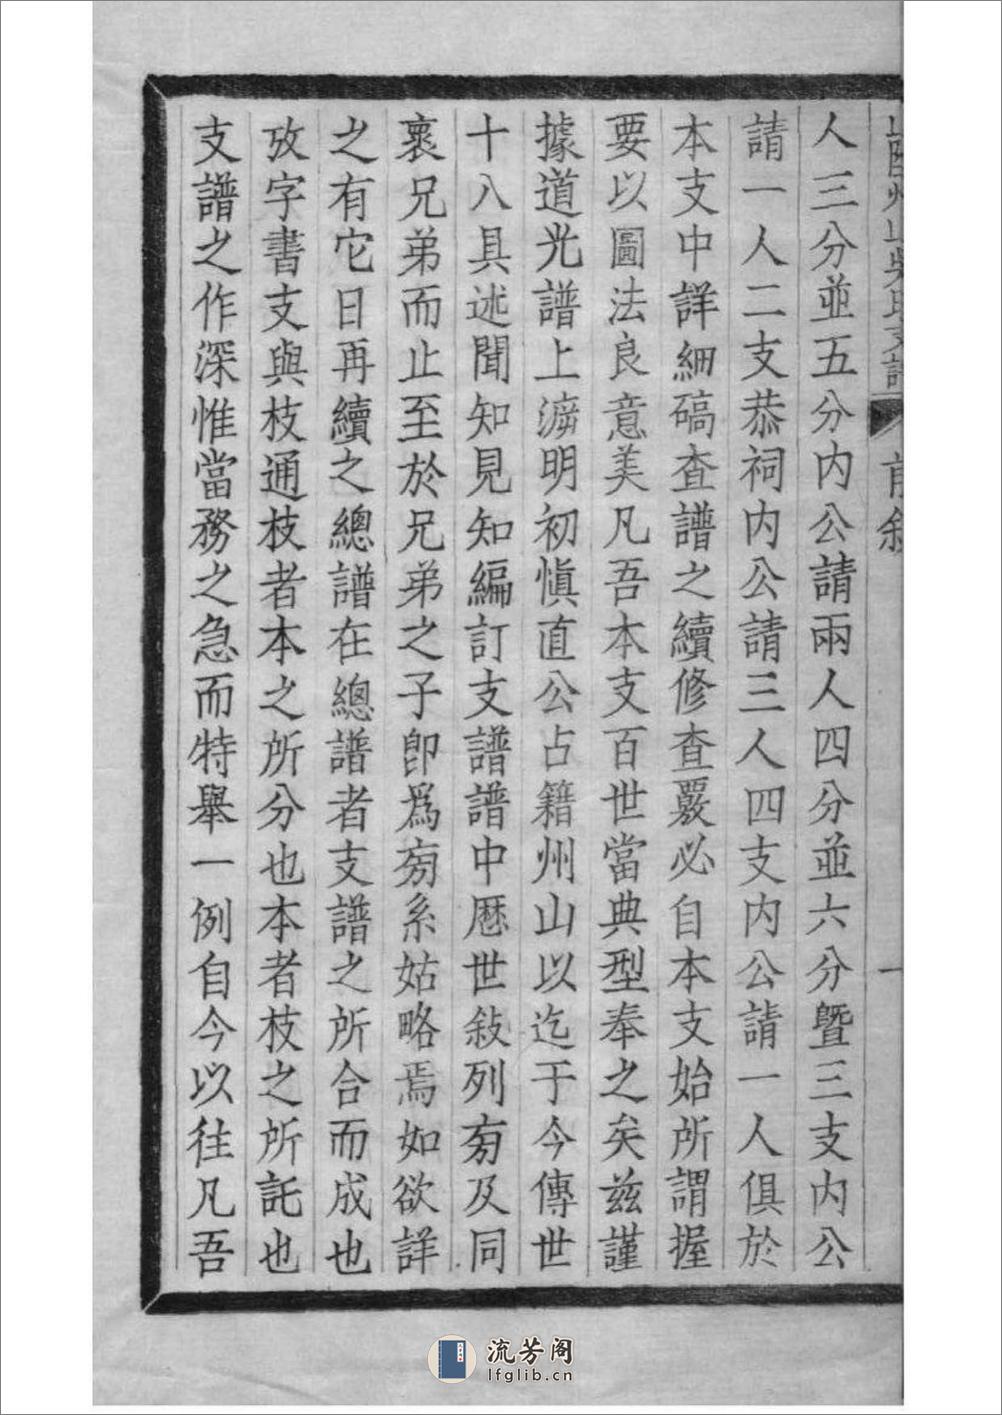 山陰州山吳氏支譜 前叙 一
人三分並五分內公請兩人四分並六分暨三支內公
請一人二支恭祠內公請三人四支內公請一人俱於
本支中詳細碻查譜之續修查覈必自本支始所謂握
要以圖法良意美凡吾本支百世當典型奉之矣茲謹
據道光譜上泝明初愼直公占籍州山以迄于今傳世
十八具述聞知見知編訂支譜譜中歷世敍列旁及同
裏兄弟而止至於兄弟之子卽爲旁系姑略焉如欲詳
之有它日再續之總譜在總譜者支譜之所合而成也
攷字書支與枝通枝者本之所分也本者枝之所託也
支譜之作深惟當務之急而特舉一例自今以往凡吾
流芳阁
lfglib.cn